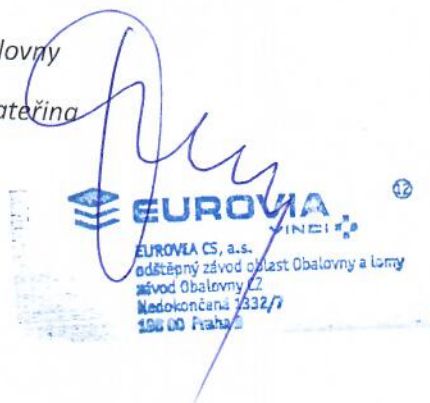 lovny
ateřina
EUROVIA
VINCI
12
EUROVIA CS, a.s.
odštěpný závod oblast Obalovny a lomy
závod Obalovny CZ
Nedokončená 1332/7
198 00 Praha